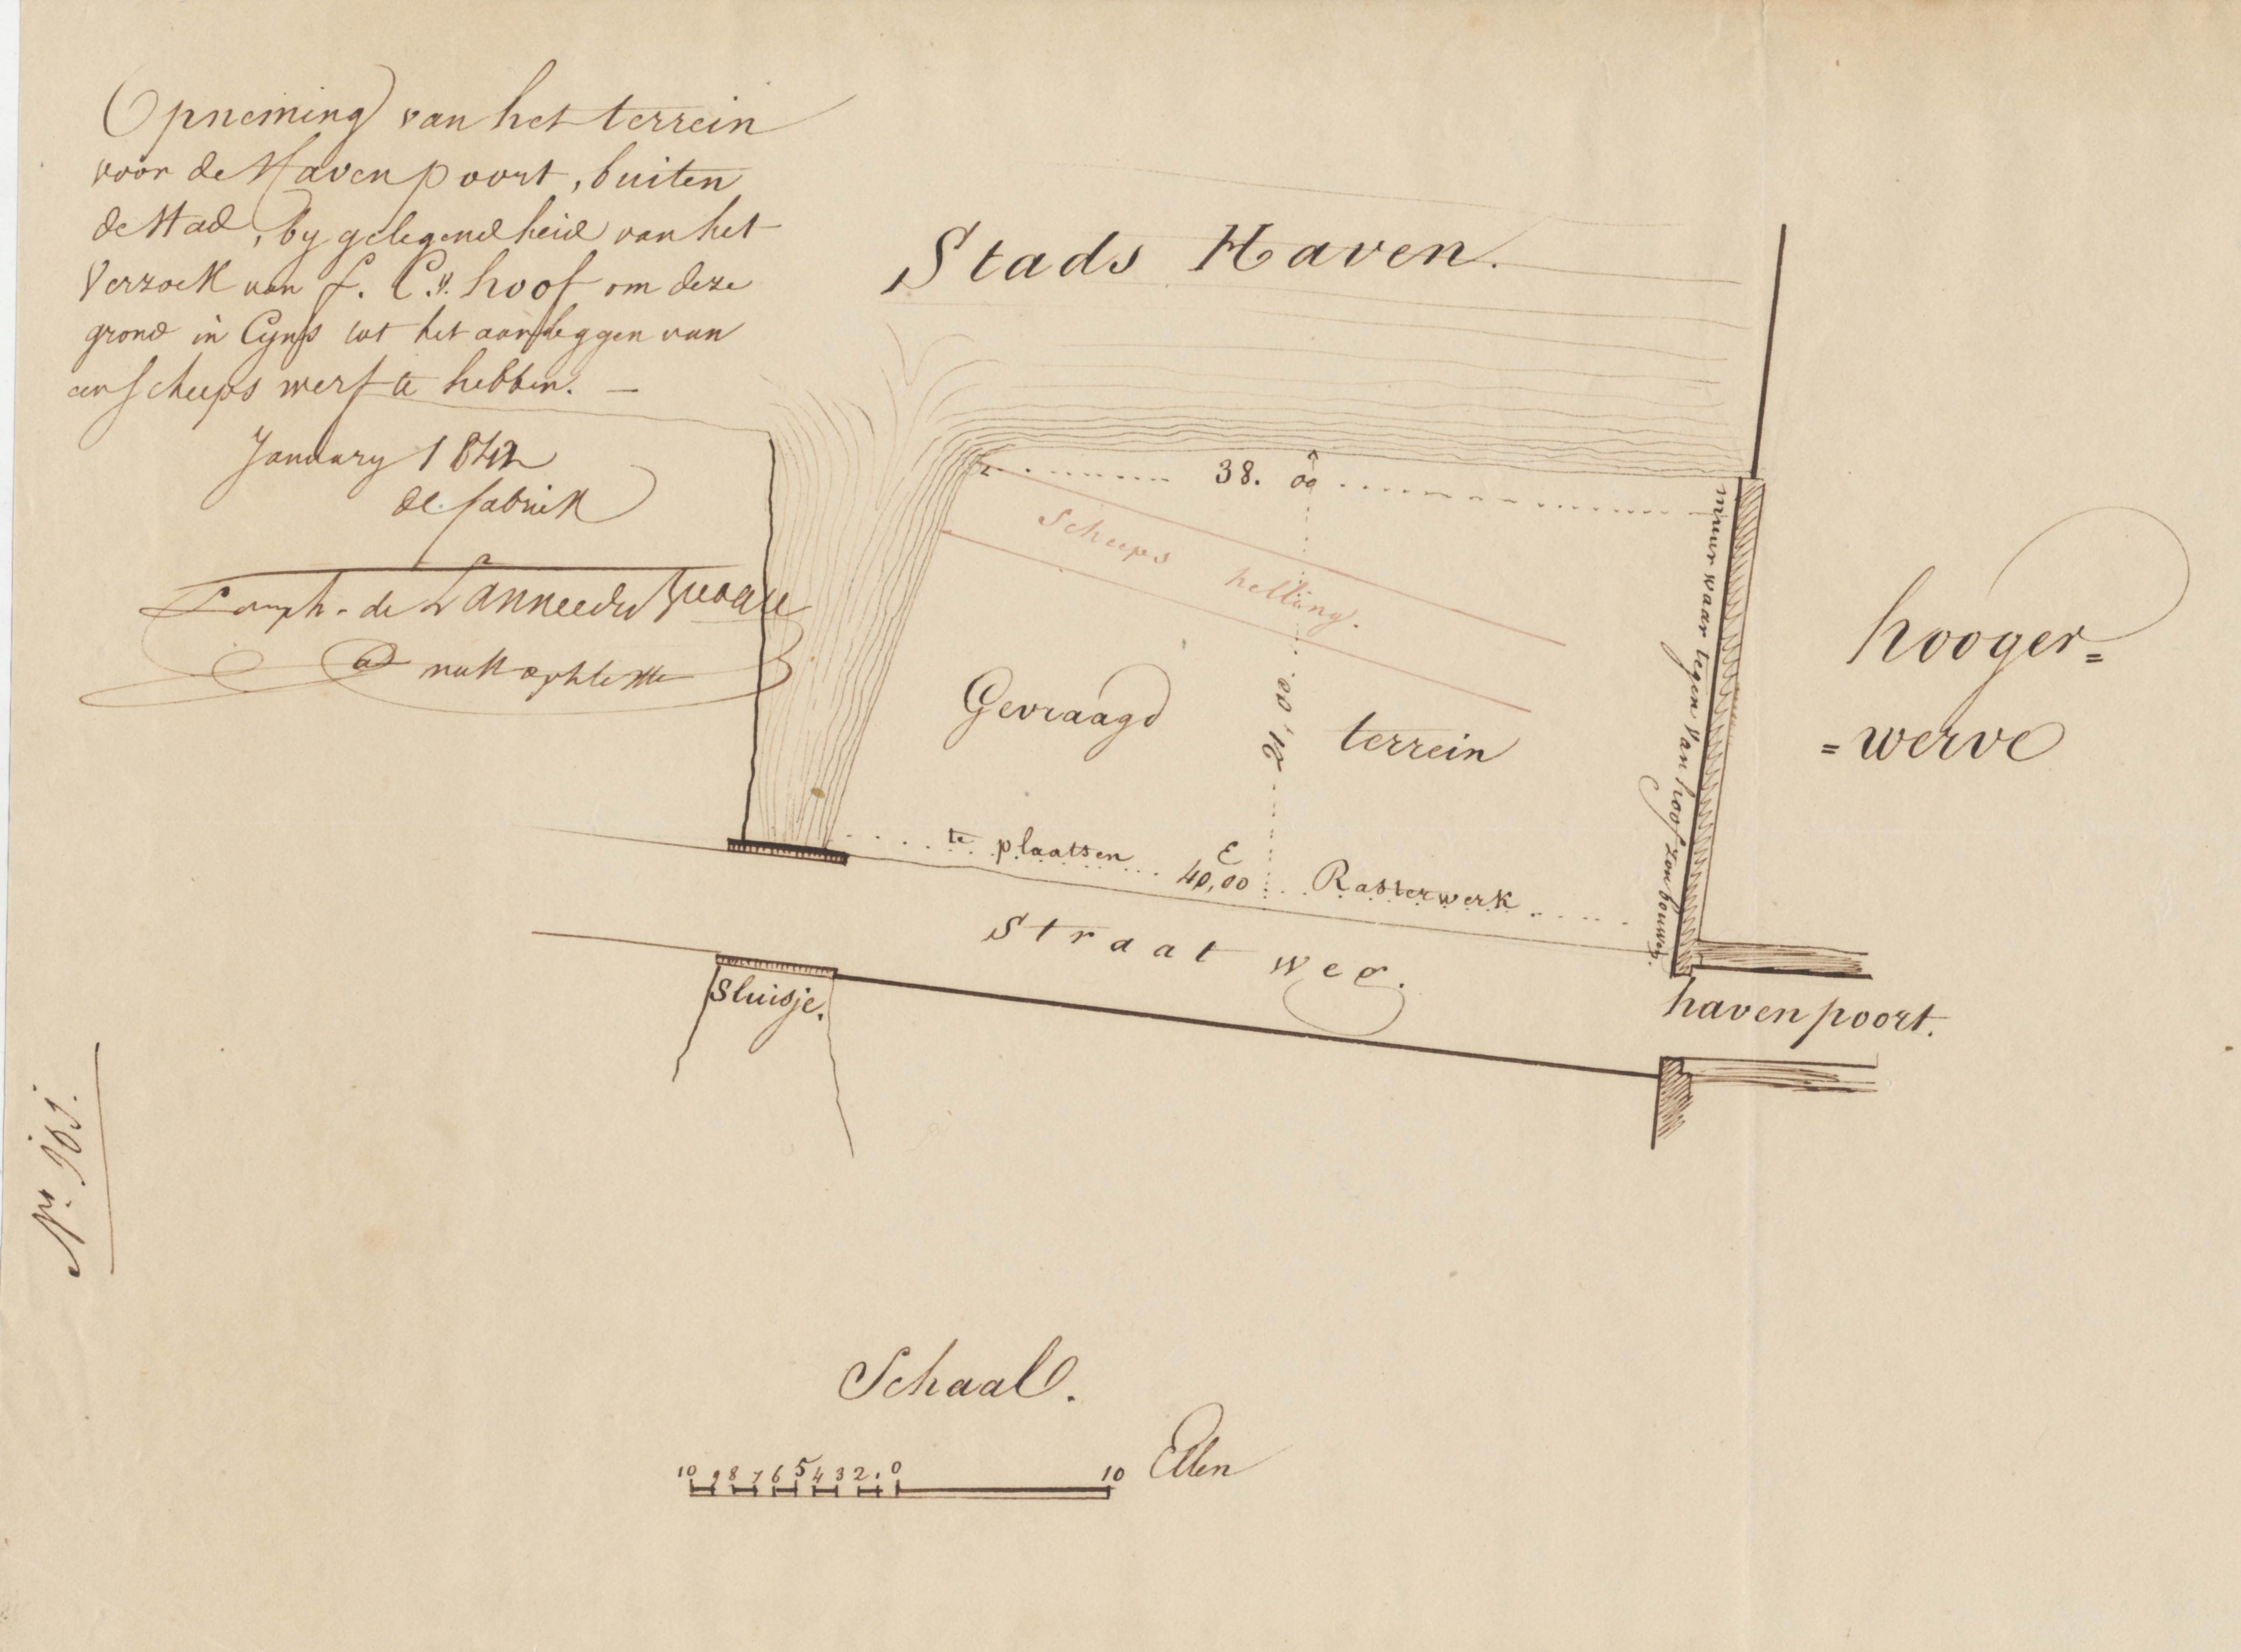 Opneming van het terrein
voor de Havenpoort, buiten
de Stad, by gelegendheid van het
Verzoek van F. C. v. hoof om deze
grond in Cyns tot het aanleggen van
een scheeps werf te hebben. —
January 1842
de fabriek
de Lannee de
Stads Haven.
38. 00
Scheeps helling.
Gevraagd terrein
21,00
te plaatsen E 40,00 Rasterwerk
Straat weg.
Sluisje.
muur waar tegen Van hoof zou bouwen.
hooger=
=werve
haven poort.
Nr. 163.
Schaal.
10 9 8 7 6 5 4 3 2 1 0 10 Ellen